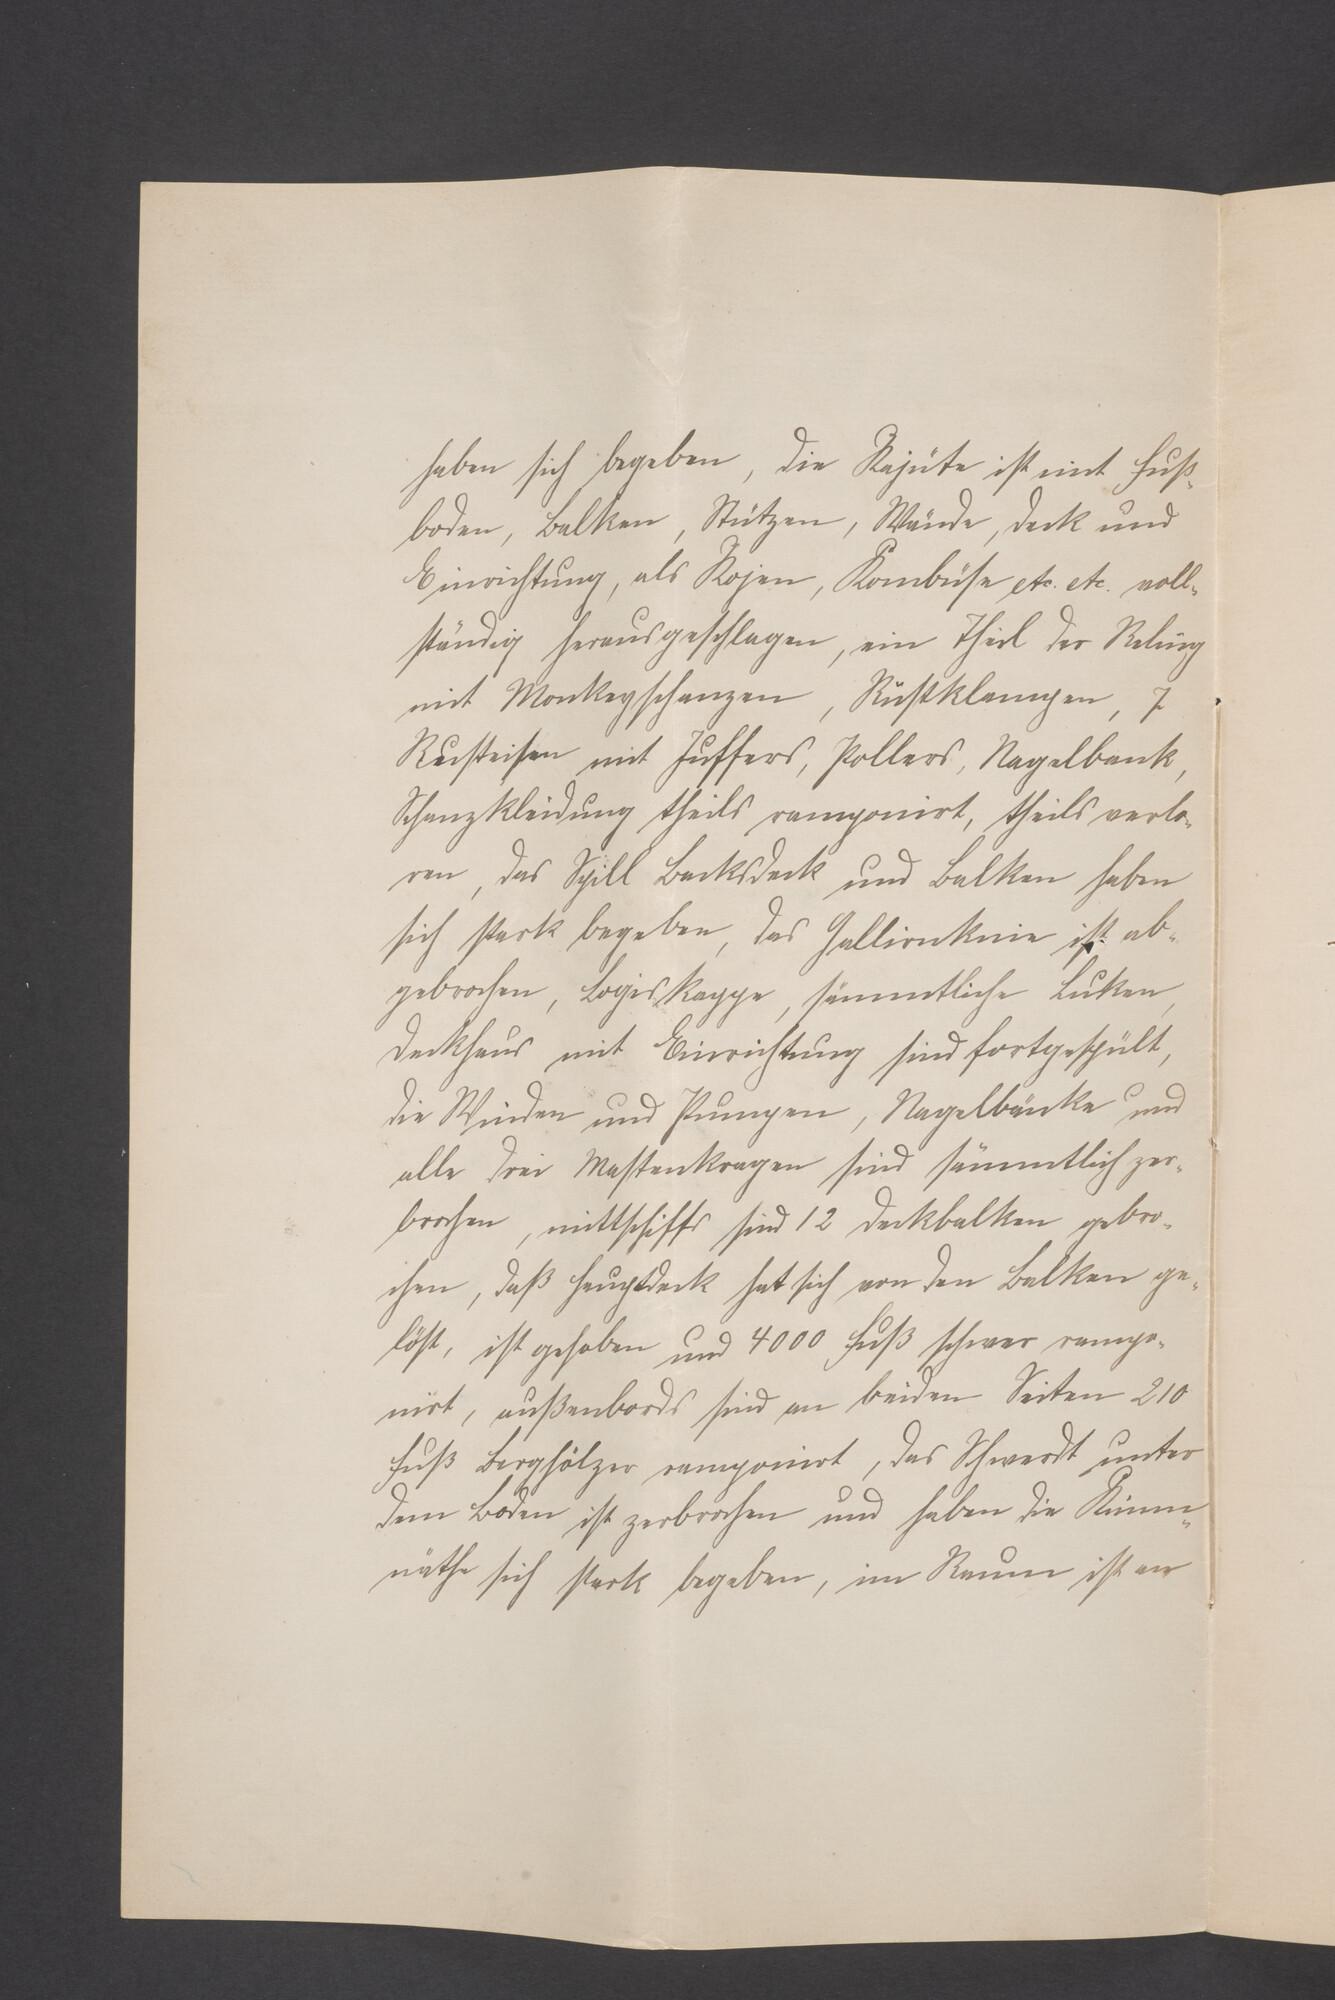 haben sich begeben, die Kajüte ist mit Fuß-
boden, Balken, Stützen, Wände, Deck und
Einrichtung, als Kojen, Kombüse etc. etc. voll-
ständig herausgeschlagen, ein Theil der Reling
mit Monkeyschanzen, Rüstklampen, 7
Rüsteisen mit Juffers, Pollers, Nagelbank,
Schanzkleidung theils ramponirt, theils verlo-
ren, das Spill Backsdeck und Balken haben
sich stark begeben, das Gallionknie ist ab-
gebrochen, Logiskappe, sämmtliche Luken,
Deckhaus mit Einrichtung sind fortgespült,
die Winden und Pumpen, Nagelbänke und
alle drei Mastenkragen sind sämmtlich zer-
brochen, mittschiffs sind 12 Deckbalken gebro-
chen, daß Hauptdeck hat sich von den Balken ge-
löst, ist gehoben und 4000 Fuß schwer rampo-
nirt, außenbords sind an beiden Seiten 210
Fuß Berghölzer ramponirt, das Schwerdt unter
dem Boden ist zerbrochen und haben die Kimm-
näthe sich stark begeben, im Raum ist an